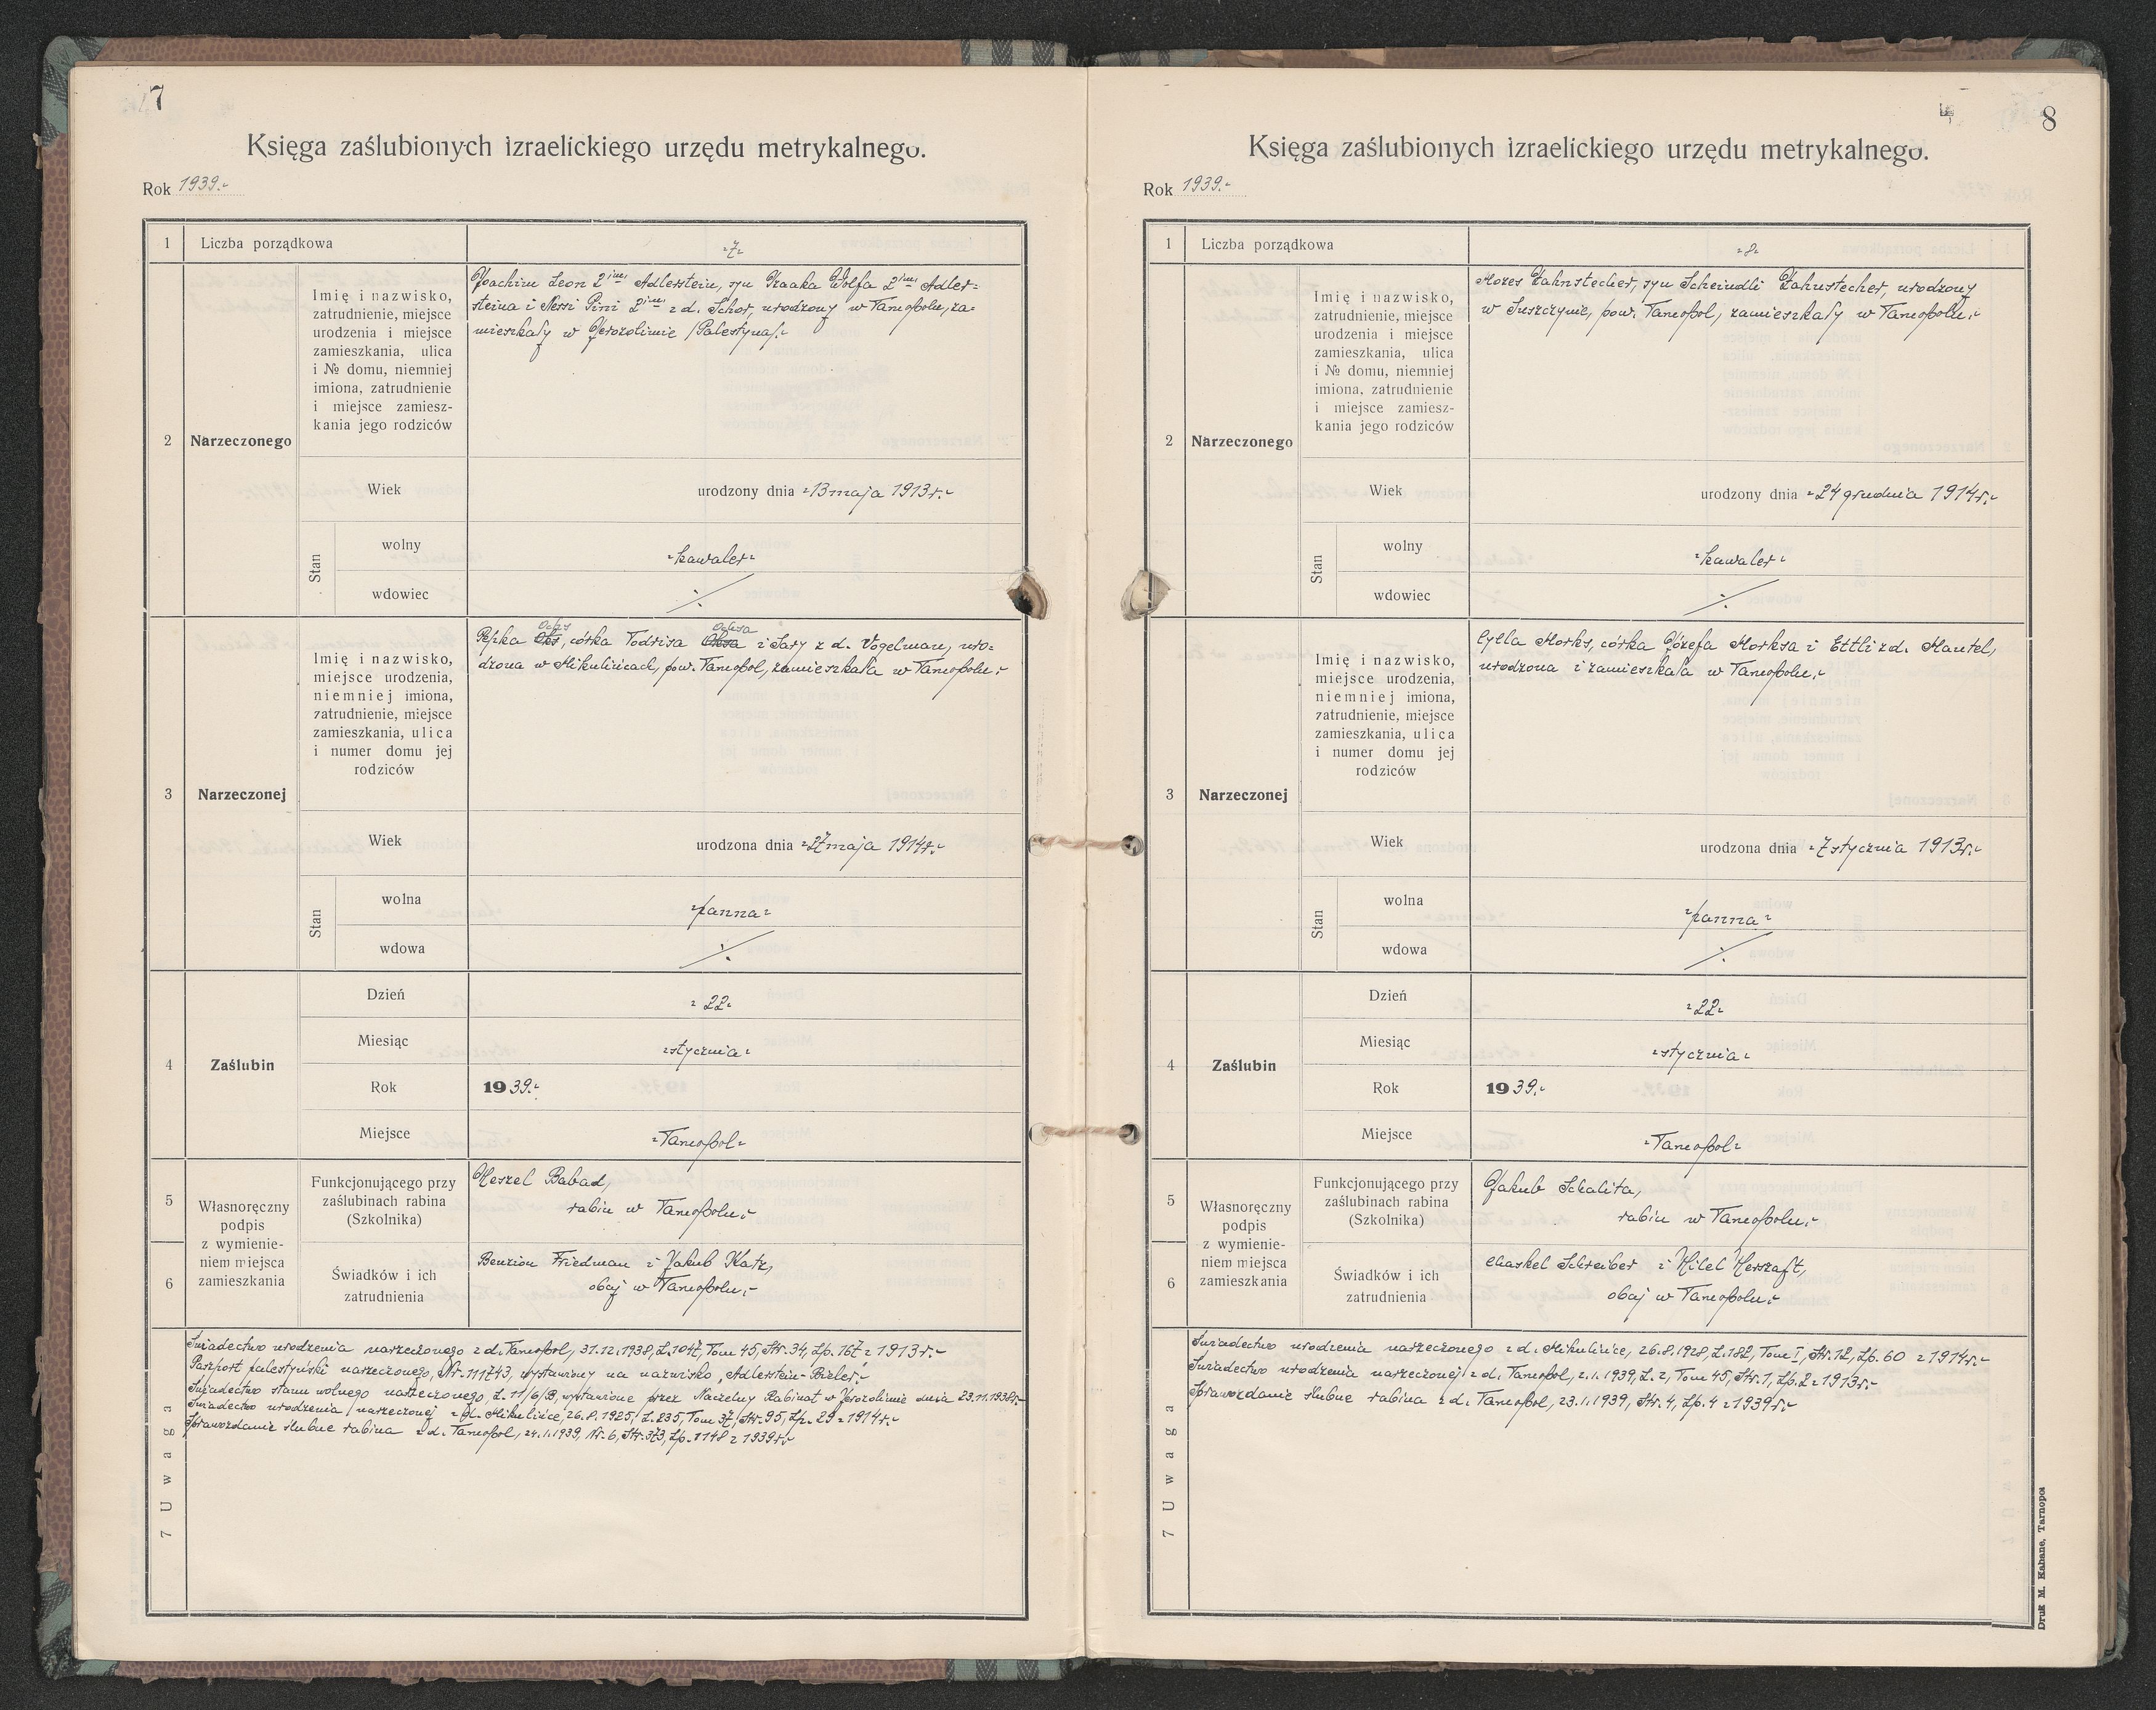 7
Księga zaślubionych izraelickiego urzędu metrykalnego.
Rok 1939.-
1 Liczba porządkowa -7-
2 Narzeczonego
Imię i nazwisko,
zatrudnienie, miejsce
urodzenia i miejsce
zamieszkania, ulica
i № domu, niemniej
imiona, zatrudnienie
i miejsce zamiesz-
kania jego rodziców
Joachim Leon 2im. Adlerstein, syn Izaaka Wolfa 2im. Adler-
steina i Nessi Pini 2im. z d. Schor, urodzony w Tarnopolu, za-
mieszkały w Jerozolimie /Palestyna/.-
Wiek urodzony dnia -13 maja 1913 r.-
Stan
wolny -kawaler-
wdowiec ·/·
3 Narzeczonej
Imię i nazwisko,
miejsce urodzenia,
niemniej imiona,
zatrudnienie, miejsce
zamieszkania, ulica
i numer domu jej
rodziców
Ochs Ochsa
Pepka Oks, córka Todrisa Oksa i Sary z d. Vogelman, uro-
dzona w Mikulińcach, pow. Tarnopol, zamieszkała w Tarnopolu.-
Wiek urodzona dnia -27 maja 1914 r.-
Stan
wolna -panna-
wdowa ·/·
4 Zaślubin
Dzień -22-
Miesiąc -stycznia-
Rok 1939.-
Miejsce -Tarnopol-
5
6
Własnoręczny
podpis
z wymienie-
niem miejsca
zamieszkania
Funkcjonującego przy
zaślubinach rabina
(Szkolnika)
Heszel Babad,
rabin w Tarnopolu.-
Świadków i ich
zatrudnienia
Benzion Friedman i Jakub Katz,
obaj w Tarnopolu.-
7 Uwaga
Świadectwo urodzenia narzeczonego z d. Tarnopol, 31.12.1938, L.1047, Tom 45, Str. 34, Lp. 167 z 1913 r.-
Paszport palestyński narzeczonego, Nr. 111743, wystawiony na nazwisko "Adlerstein-
Świadectwo stanu wolnego narzeczonego, L. 11/6/B, wystawione przez Naczelny Rabinat w Jerozolimie dnia 23.11.1938 r.-
Świadectwo urodzenia narzeczonej z d. Mikulińce, 26.8.1925, L. 235, Tom 37, Str. 95, Lp. 29 z 1914 r.-
Sprawozdanie ślubne rabina z d. Tarnopol, 24.1.1939, Nr. 6, Str. 373, Lp. 1148 z 1939 r.-
8
Księga zaślubionych izraelickiego urzędu metrykalnego.
Rok 1939.-
1 Liczba porządkowa -8-
2 Narzeczonego
Imię i nazwisko,
zatrudnienie, miejsce
urodzenia i miejsce
zamieszkania, ulica
i № domu, niemniej
imiona, zatrudnienie
i miejsce zamiesz-
kania jego rodziców
Mozes Zahnstecher, syn Scheindli Zahnstecher, urodzony
w Suszczynie, pow. Tarnopol, zamieszkały w Tarnopolu.-
Wiek urodzony dnia -24 grudnia 1914 r.-
Stan
wolny -kawaler-
wdowiec ·/·
3 Narzeczonej
Imię i nazwisko,
miejsce urodzenia,
niemniej imiona,
zatrudnienie, miejsce
zamieszkania, ulica
i numer domu jej
rodziców
Cylla Morks, córka Józefa Morksa i Ettli z d. Mantel,
urodzona i zamieszkała w Tarnopolu.-
Wiek urodzona dnia -7 stycznia 1913 r.-
Stan
wolna -panna-
wdowa ·/·
4 Zaślubin
Dzień -22-
Miesiąc -stycznia-
Rok 1939.-
Miejsce -Tarnopol-
5
6
Własnoręczny
podpis
z wymienie-
niem miejsca
zamieszkania
Funkcjonującego przy
zaślubinach rabina
(Szkolnika)
Jakub Schalita,
rabin w Tarnopolu.-
Świadków i ich
zatrudnienia
Chaskel Schreiber i Hilel Herszaft,
obaj w Tarnopolu.-
7 Uwaga
Świadectwo urodzenia narzeczonego z d. Mikulińce, 26.8.1928, L. 182, Tom I, Str. 12, Lp. 60 z 1914 r.-
Świadectwo urodzenia narzeczonej z d. Tarnopol, 2.1.1939, L. 2, Tom 45, Str. 1, Lp. 2 z 1913 r.-
Sprawozdanie ślubne rabina z d. Tarnopol, 23.1.1939, Str. 4, Lp. 4 z 1939 r.-
Druk M. Kahane, Tarnopol